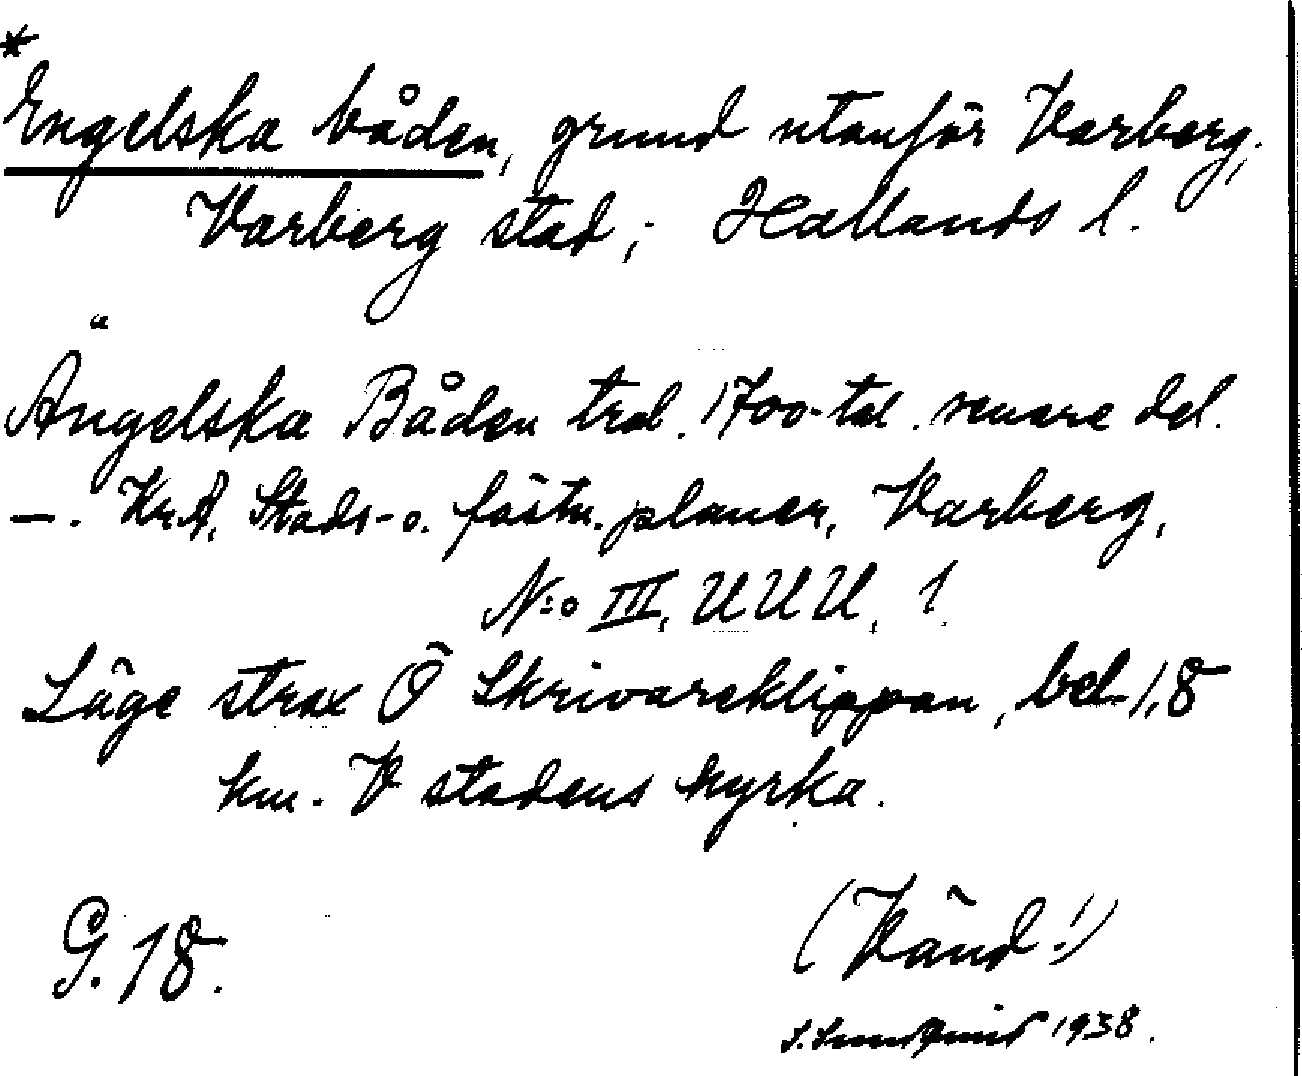 *
Engelska båden, grund utanför Varberg,
Varberg stad, Hallands l.
Ängelska Båden trol. 1700-tal. senare del.
—. Kr.A. Stads- o. fästn. planer, Varberg,
N:o III, UUU, 1.
Läge strax Ö Skrivareklippan, bel. 1,8
km. V stadens kyrka.
G. 18.
(Vänd!)
1938.